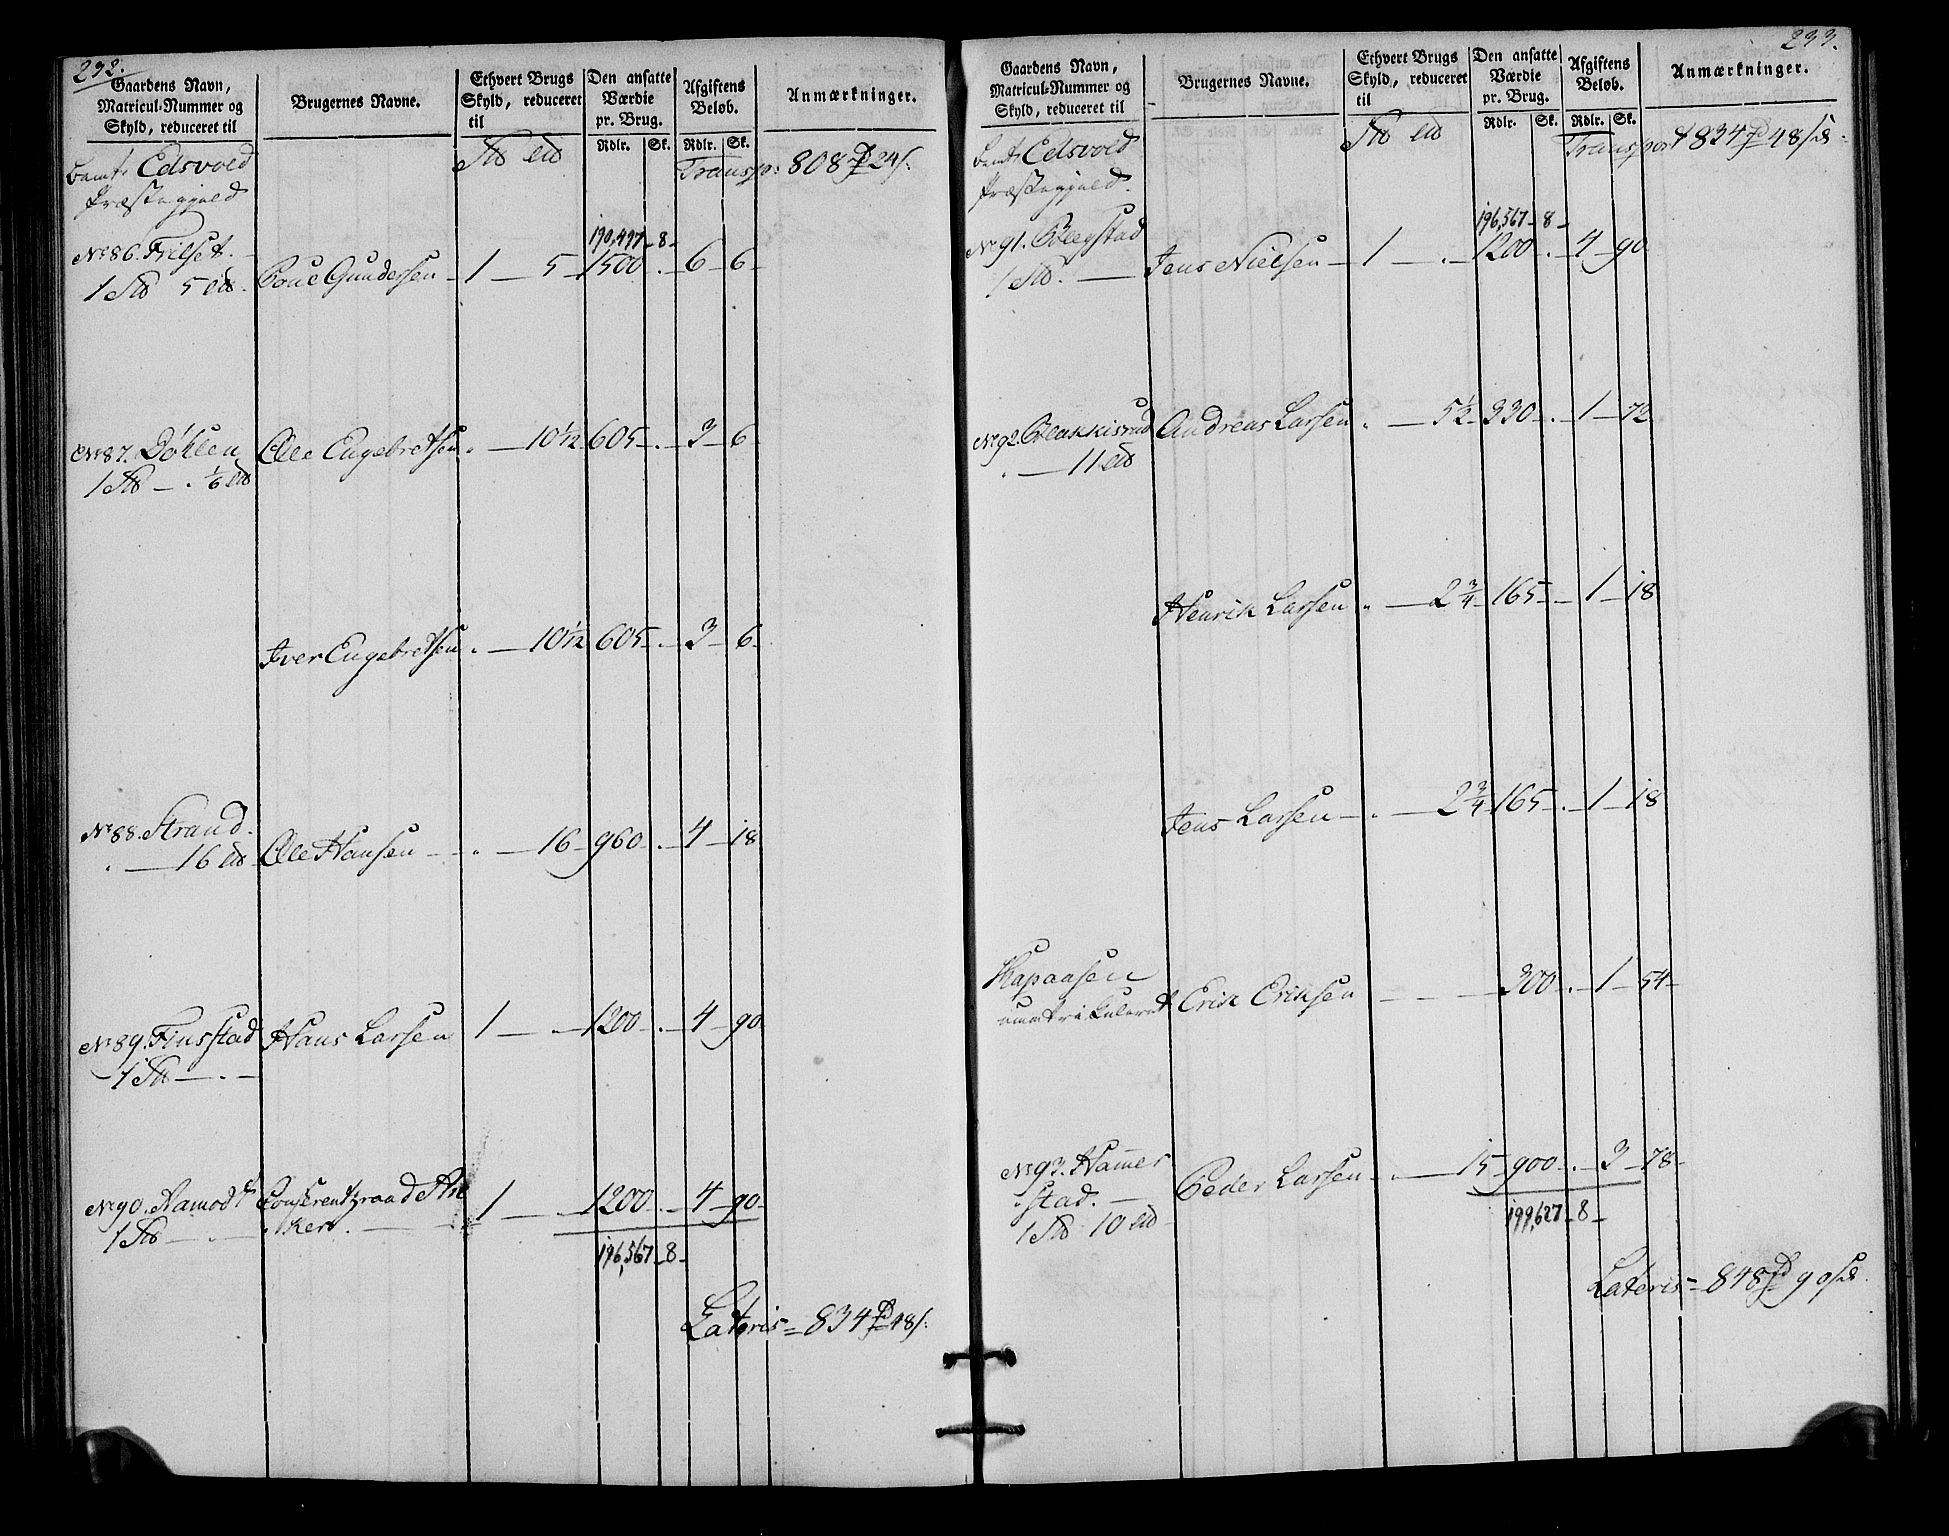 232.
Gaardens Navn,
Matricul-Nummer og
Skyld, reduceret til
Brugernes Navne.
Ethvert Brugs
Skyld, reduceret
til
Den ansatte
Værdie
pr. Brug.
Rdlr. Sk.
Afgiftens
Beløb.
Rdlr. Sk.
Anmærkninger.
Edsvold
Præstegjeld
Transp: 808 24 s.
190,497 - 8 -
No 86. Frilset.
1 5
Poul Gundersen - 1 - 5 - 1500 . - 6 - 6 -
No 87. Døhlen
1 - . 1/6
Ole Engebretsen . - 10 1/12 605 - . - 3 - 6
Iver Engebretsen . - 10 1/12 605 - . - 3 - 6 -
No 88. Strand.
. - 16
Ole Hansen - . - 16 - 960 - . - 4 - 18
No 89. Finsstad
1 - . -
Hans Larsen 1 - . - 1200 - . - 4 - 90
No 90. 
1 - . -
Conferentzraad An
ker. 1 - . - 1200 - . - 4 - 90 -
196,567 - 8 -
Lateris = 834 48 s.
233.
Gaardens Navn,
Matricul-Nummer og
Skyld, reduceret til
Brugernes Navne.
Ethvert Brugs
Skyld, reduceret
til
Den ansatte
Værdie
pr. Brug.
Rdlr. Sk.
Afgiftens
Beløb.
Rdlr. Sk.
Anmærkninger.
Edsvold
Præstegjeld.
Transport 834 48
196,567 - 8 -
No 91. Bøegstad
1 . -
Jens Nielsen - 1 - . - 1200 - . - 4 - 90
No 92. Blakkisrud
. - 11
Andreas Larsen . - 5 1/2 330 - . - 1 - 72
Henrik Larsen . - 2 3/4 - 165 - . - 1 - 18
Jens Larsen - . - 2 3/4 165 - . - 1 - 18
Skapaasen
umatriculeret
Erik Eriksen - - - 300 - . - 1 - 54 -
No 93. Hamer
stad. -
1 10
Peder Larsen - . - 15 - 900 - . - 3 - 78 -
199,627 - 8 -
Lateris = 848 90